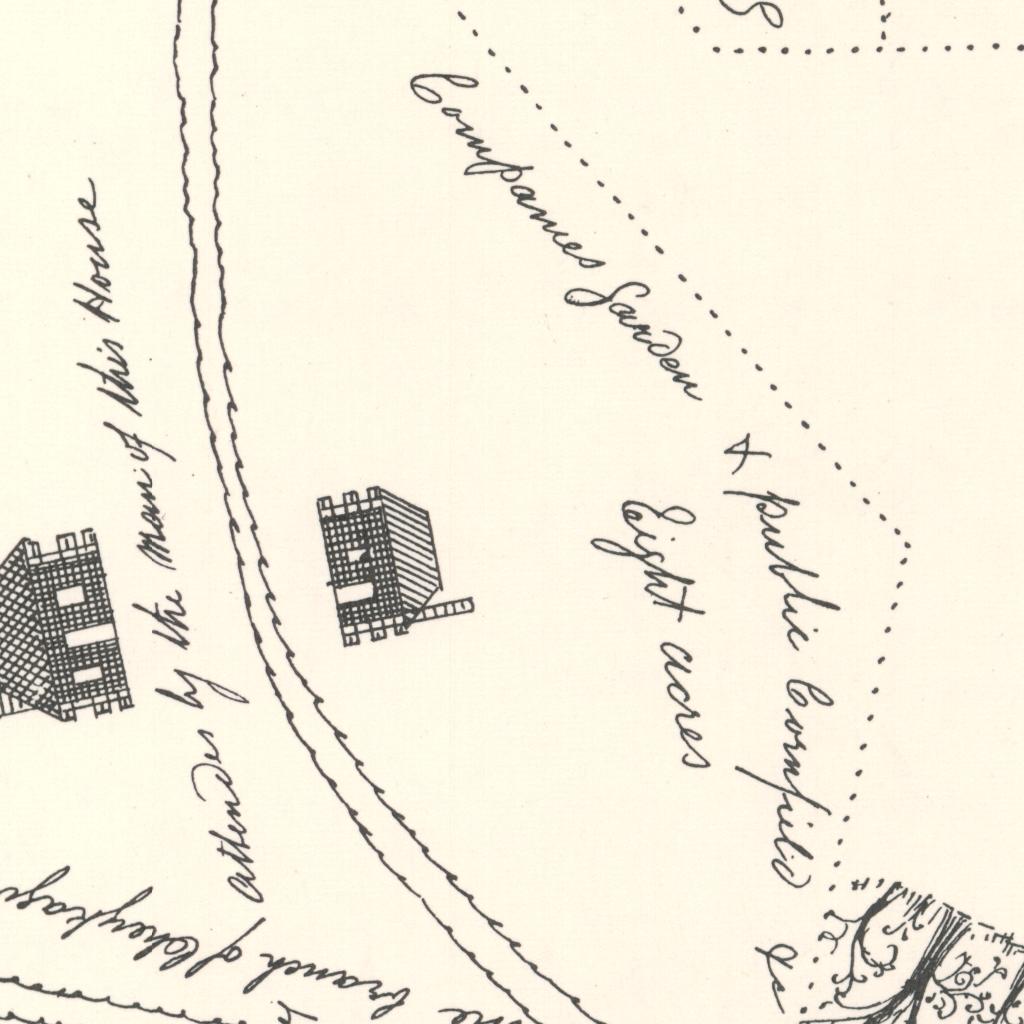 Companies Garden
& public Cornfield
Eight acres
attended by the man of this House
branch of